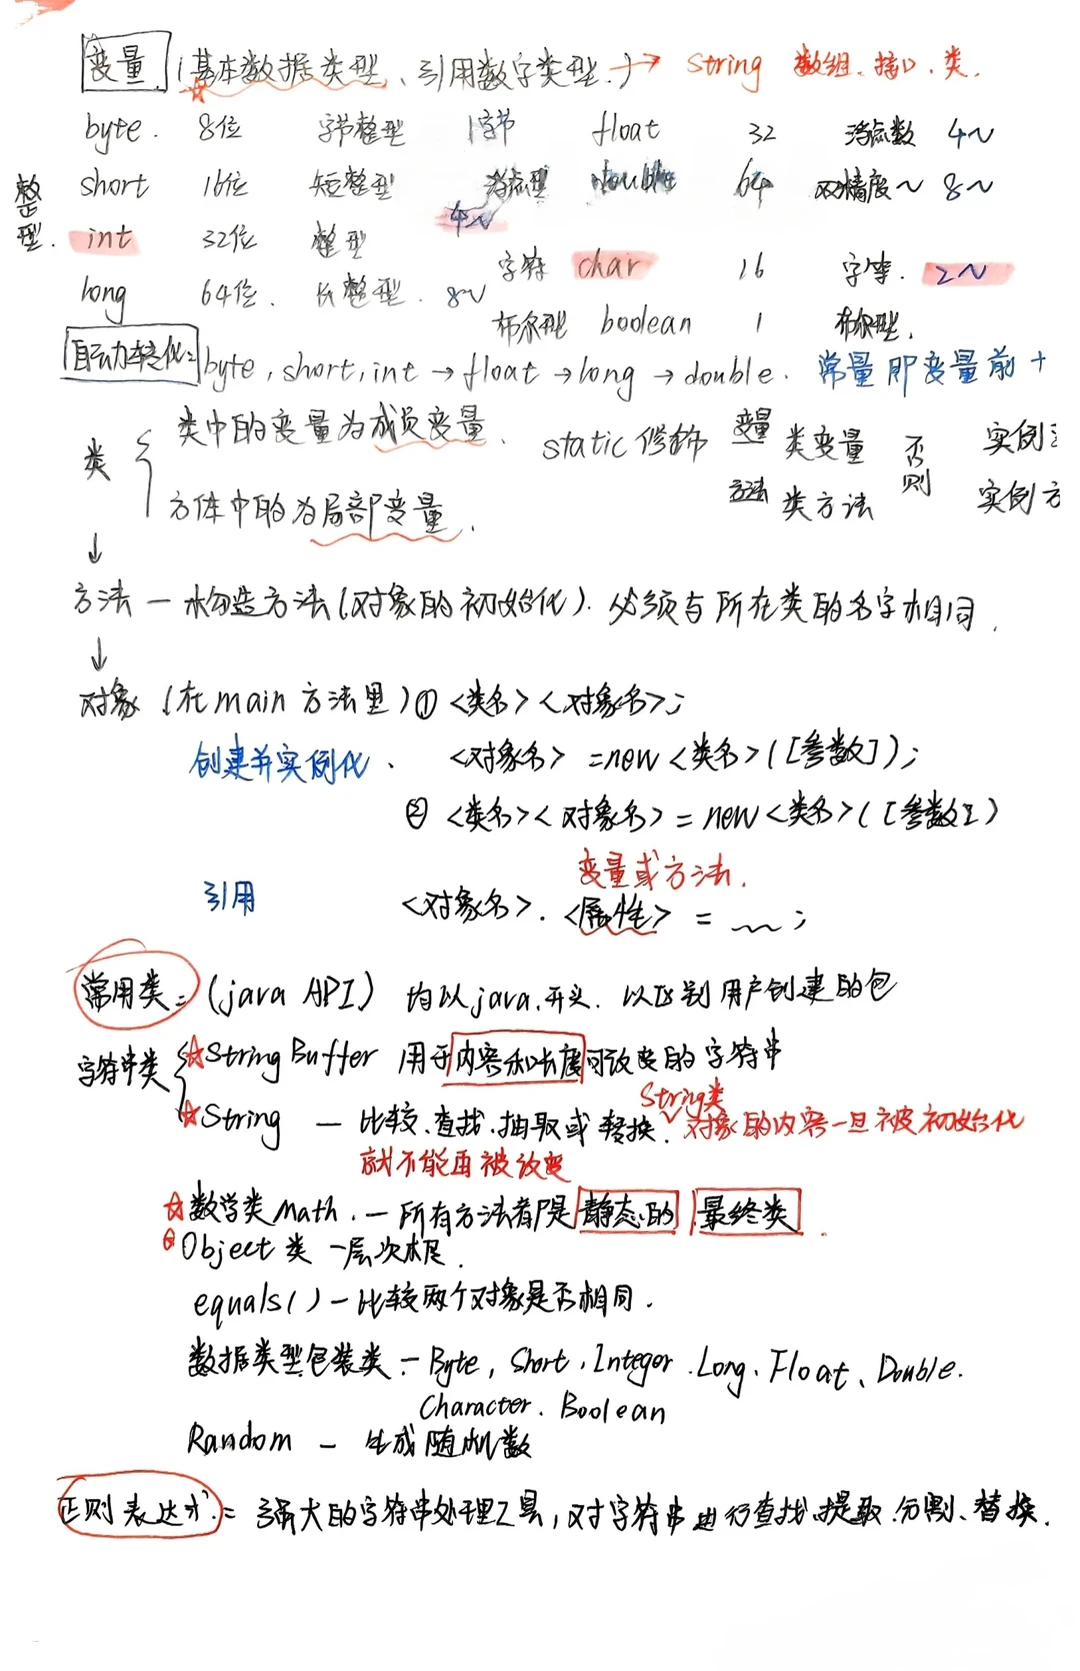 变量 (基本数据类型、引用数字类型.) → String 数组.接口.类.
byte. 8位 字节整型 1字节 float 32 浮点数 4~
整型. short 16位 短整型 浮点型 double 64 双精度~ 8~
int 32位 整型 4~
字符 char 16 字符. 2~
long 64位. 长整型. 8~
布尔型 boolean 1 布尔型.
自动转化: byte, short, int → float → long → double. 常量即变量前+
类 { 类中的变量为成员变量、 static修饰 变量 类变量 否则 实例
方体中的为局部变量. 方法 类方法 实例方
↓
方法 — 构造方法(对象的初始化). 必须与所在类的名字相同.
↓
对象 (在main方法里) ① <类名> <对象名>;
创建并实例化、 <对象名> =new <类名> ([参数]);
② <类名> <对象名> = new <类名> ([参数])
变量或方法.
引用 <对象名>. <属性> = ~;
常用类: (java API) 均以java.开头. 以区别用户创建的包
字符串类 { ☆StringBuffer 用于内容和长度可改变的字符串
☆String — 比较.查找.抽取或转换. String类对象的内容一旦被初始化
就不能再被改变
☆数学类Math. — 所有方法都是静态的 最终类.
Object类 — 层次根.
equals() — 比较两个对象是否相同.
数据类型包装类 — Byte, Short, Integer. Long、Float、Double.
Character. Boolean
Random — 生成随机数
正则表达式: = 强大的字符串处理工具, 对字符串进行查找.提取.分割、替换.